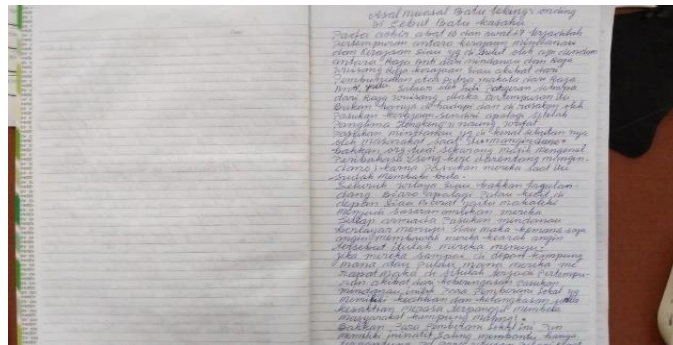 Asal muasal Batu Leking-onding
di Sebut Batu kasaha
Pada akhir abad 15 dan awal 17 terjadilah
Pertempuran antara kerajaan mindanau
dan Kerajaan Siau yg di Sulut oleh api dendam
antara Raja dari mindanau dan Raja
Winsang Raja kerajaan Siau akibat dari
Pembunuhan atas Putra makota dari Raja
dari Raja Winsang, maka Pertempuran itu
Bukan hanya di hadapi dan di rasakan oleh
Pasukan Kerajaan sendiri apalagi setelah
Panglima Hengkeng u naung wafat
Pasukan mindanau yg di kenal sebutan nya
oleh masyarakat saat
bahkan org tua sekarang masih mengenal
karna Pasukan mereka saat itu
Sudah membabi buta.
Seluruh wilayah Siau bahkan tagulan-
dang Biaro apalagi Pulau kecil di
depan Siau Barat yaitu makalehi
menjadi sasaran amukan mereka
Setiap armada Pasukan mindanau
berlayar menuju Siau maka kemana saja
angin membawa mereka kearah angin
tersebut itulah mereka menuju.
Jika mereka sampai di depan kampung
mana atau pulau mana mereka me
rapat maka di situlah terjadi Pertempu-
ran akibat dari keberingasan Pasukan
mindanau, inilah Para Pemberani Lokal yg
memiliki keahlian dan ketangkasan
kesaktian merasa terpanggil membela
masyarakat kampung masing.
Bahkan Para Pemberani Lokal ini Pun
memiliki inisiatif Saling membantu